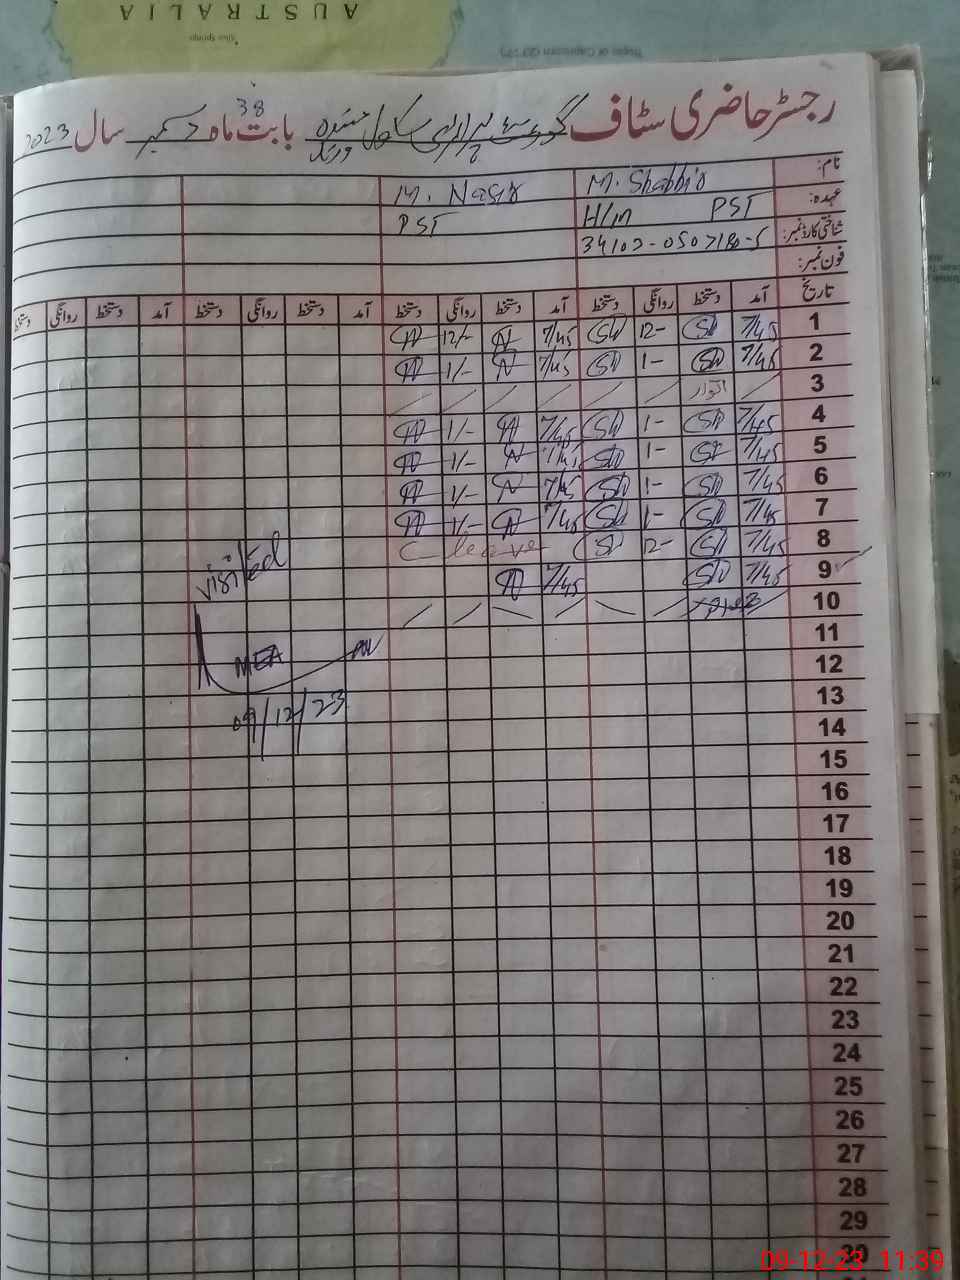 AUSTRALIA
Alice Springs
Tropic of Capricorn
رجسٹر حاضری سٹاف گورنمنٹ پرائمری سکول بابت ماہ دسمبر سال 2023
38
نام: M. Shabbir M. Nasir
عہدہ: H/m PST PST
شناختی کارڈ نمبر:
فون نمبر:
تاریخ آمد دستخط روانگی دستخط آمد دستخط روانگی دستخط آمد دستخط روانگی دستخط آمد دستخط روانگی دستخط
1 7/45 SH 12- SH 7/45 N 12/- N
2 7/45 SH 1- SH 7/45 N 1/- N
3 اتوار
4 7/45 SH 1- SH 7/45 N 1/- N
5 7/45 SH 1- SH 7/45 N 1/- N
6 7/45 SH 1- SH 7/45 N 1/- N
7 7/45 SH 1- SH 7/45 N 1/- N
8 7/45 SH 12- SH C-leave
9 7/45 SH 7/45 N
10
visited
11
12
MEA
13
09/12/23
14
15
16
17
18
19
20
21
22
23
24
25
26
27
28
29
30
09-12-23 11:39